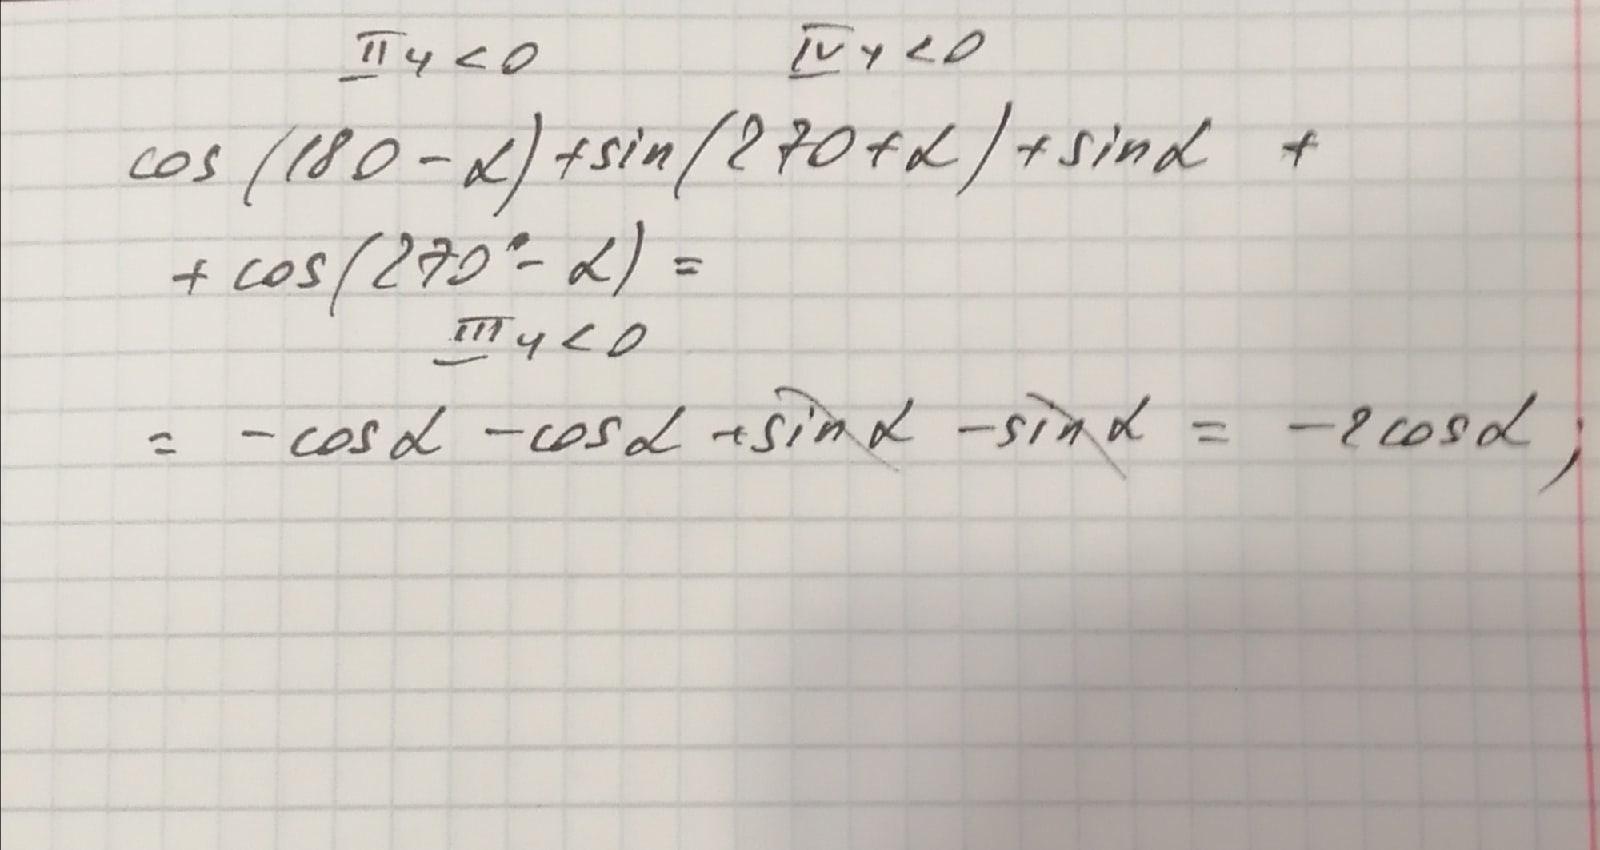 II ч < 0 IV ч < 0
cos (180 - α) + sin (270 + α) + sin α +
+ cos (270° - α) =
III ч < 0
= - cos α - cos α + sin α - sin α = - 2 cos α ;